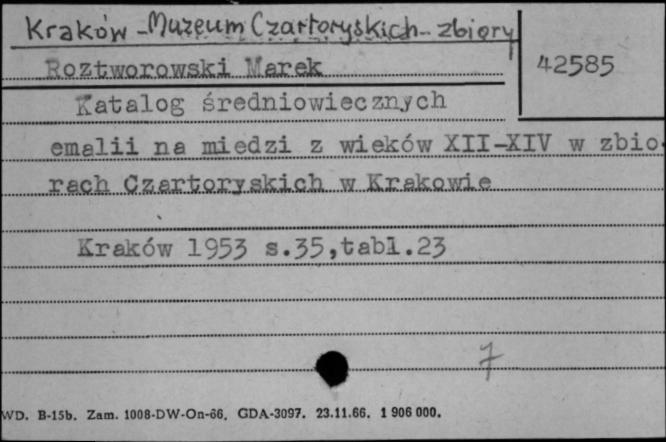 Kraków - Muzeum Czartoryskich - zbiory
Roztworowski Marek
42585
Katalog średniowiecznych
emalii na miedzi z wieków XII-XIV w zbio-
rach Czartoryskich w Krakowie
Kraków 1953 s.35,tabl.23
7
WD. B-15b. Zam. 1008-DW-On-66. GDA-3097. 23.11.66. 1 906 000.